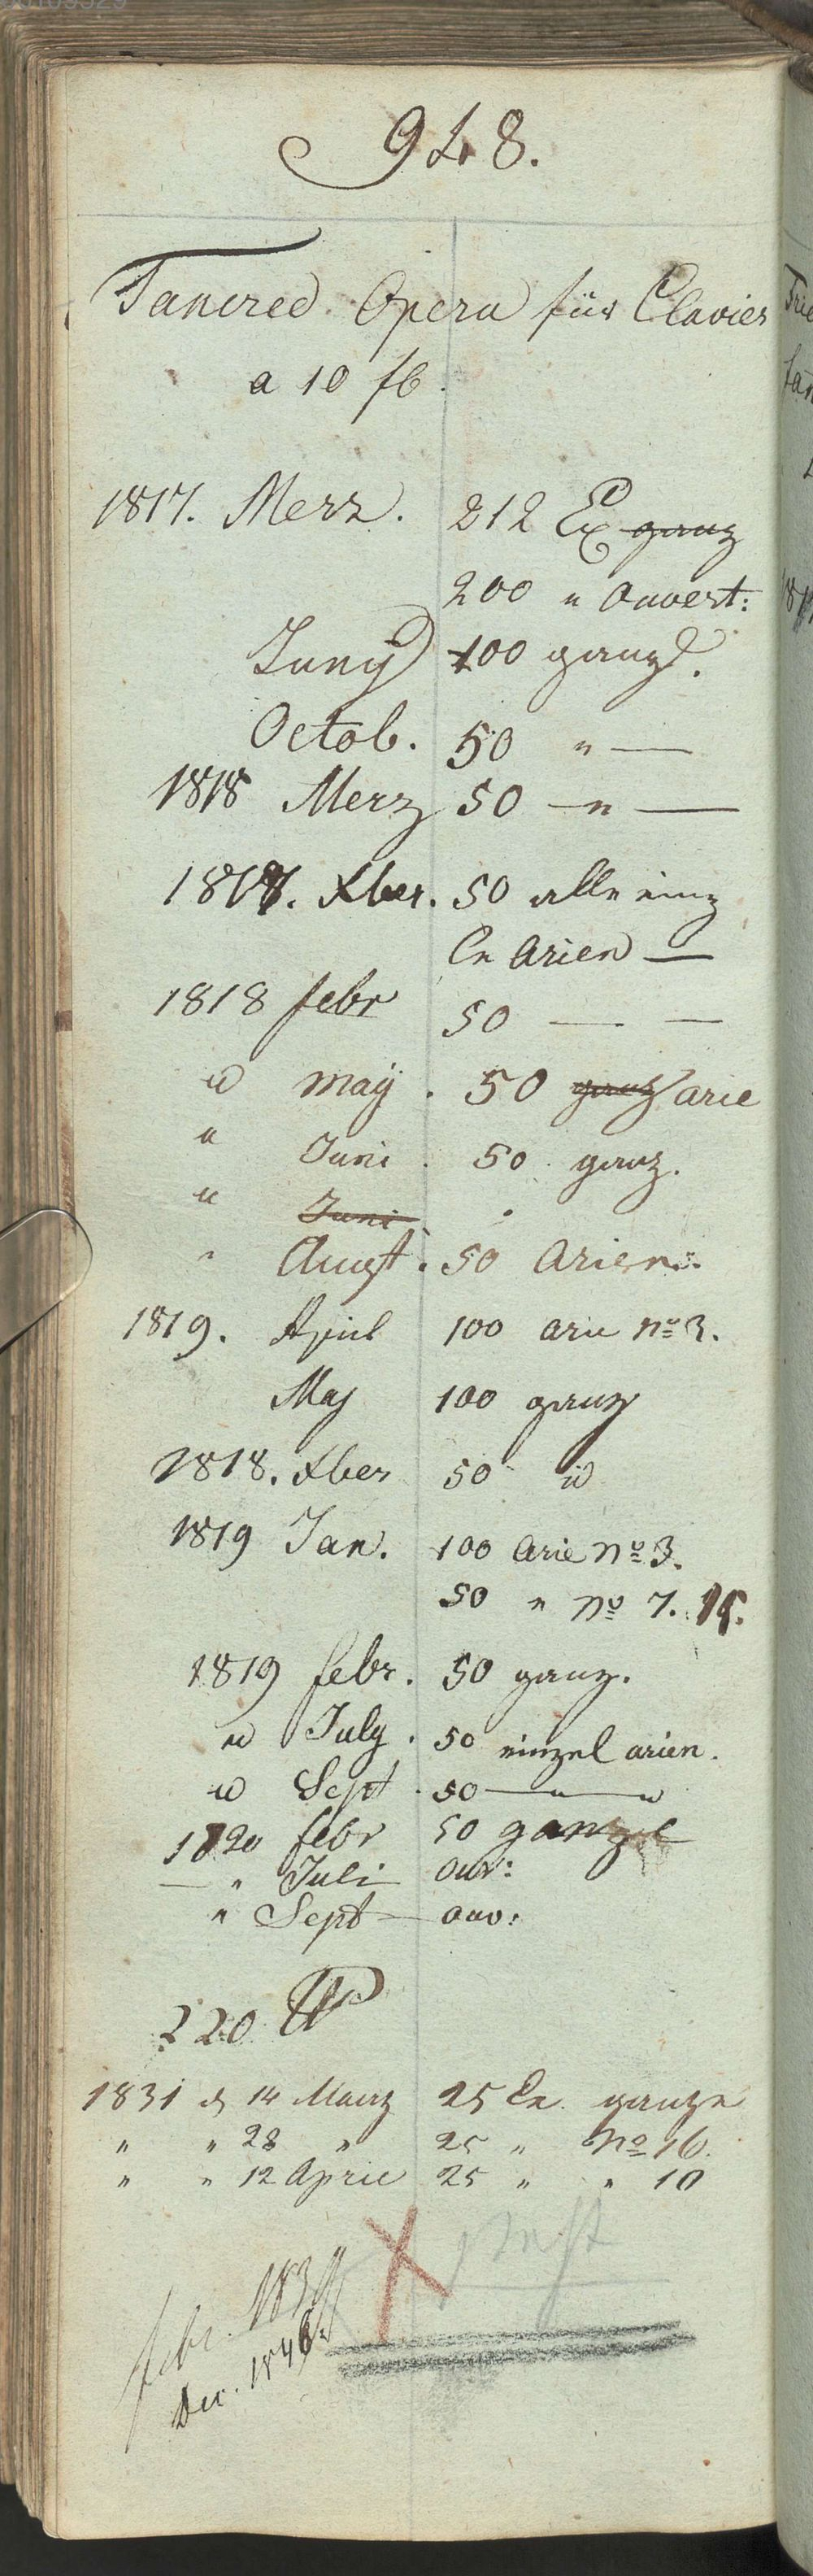 948.
Tancred Opera für Clavier
a 10 f
1817. Merz. 212 Ex ganz
200 " Ouvert:
Juny 100 ganze.
Octob. 50 " —
1818 Merz 50 — " —
1817. Xber. 50 alle einz
le Arien —
1818 febr 50 — —
" may. 50 ganz arie
" Juni. 50 ganz.
" Juni
" Augst. 50 Arien.
1819. April 100 arie No 3.
May 100 ganz
1818. Xber 50 "
1819 Jan. 100 Arie No 3.
50 " No 7.
1819 febr. 50 ganz.
" July. 50 einzel arien.
" Sept. 50 — " — "
1820 febr 50 ganze
— " Juli ouv:
" Sept — ouv:
220
1831 d 14 Maerz 25 Ex. ganze
" " 28 " 25 " No 16.
" " 12 April 25 " " 10
X
febr.
Dec. 1846.